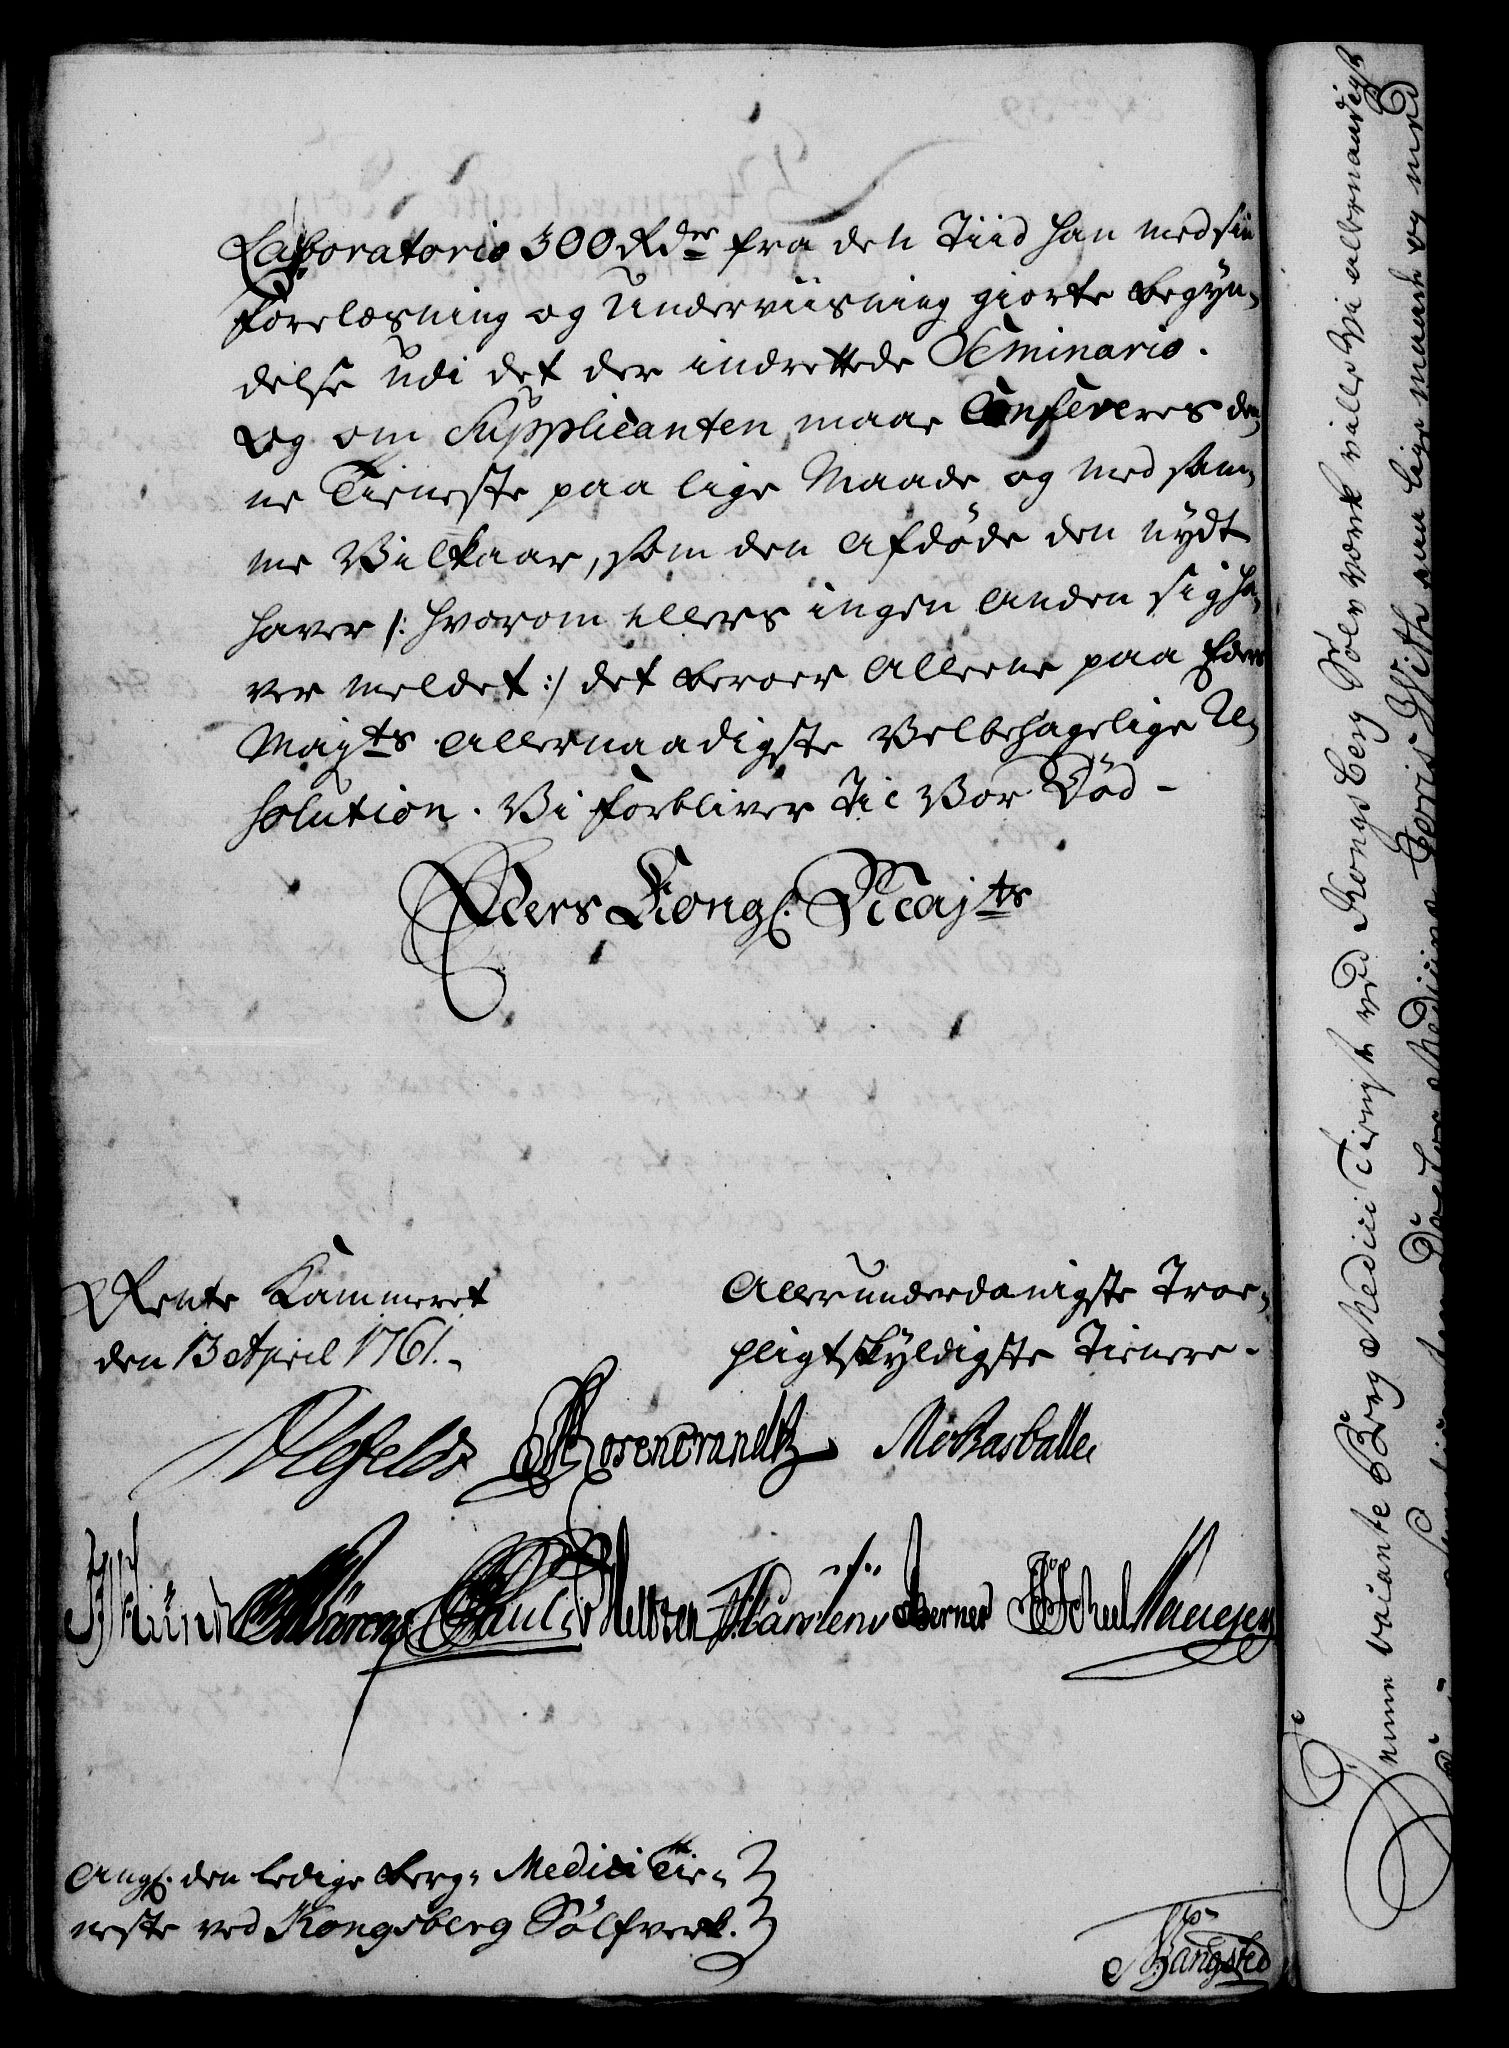 Laboratorio 300 Rdr fra den Tiid han med sin
forelæsning og Underviisning giorte begyn-
delse udi det der indrettede Seminario.
Og om Supplicanten maae Confereres den-
ne Tieneste paa lige Maade og med sam-
me Vilkaar, som den Afdøde den nydt
haver /: hvorom ellers ingen Anden sig ha-
ver meldet :/ det beroer Alleene paa Eders
Mayts Allernaadigste Velbehagelige Re-
solution. Vi forbliver Til Vor Død -
Eders Kongl. Mayts
Rente Kammeret
den 13 April 1761.
Allerunderdanigste Troe-
pligtskyldigste Tienere.
Ahlefeldt Rosencrantz
Bärens Paul Meltzen Bärtens Berner Scheel
Angl. den ledige berg-Medici Tie-
neste ved Kongsberg Sølfverk.
Bangsted
Denne vacante Berg Medici Tieneste ved Kongsberg Sølv værk ville Vi allernaadigst
Doctor Medicinæ Joris With paa lige maade og med